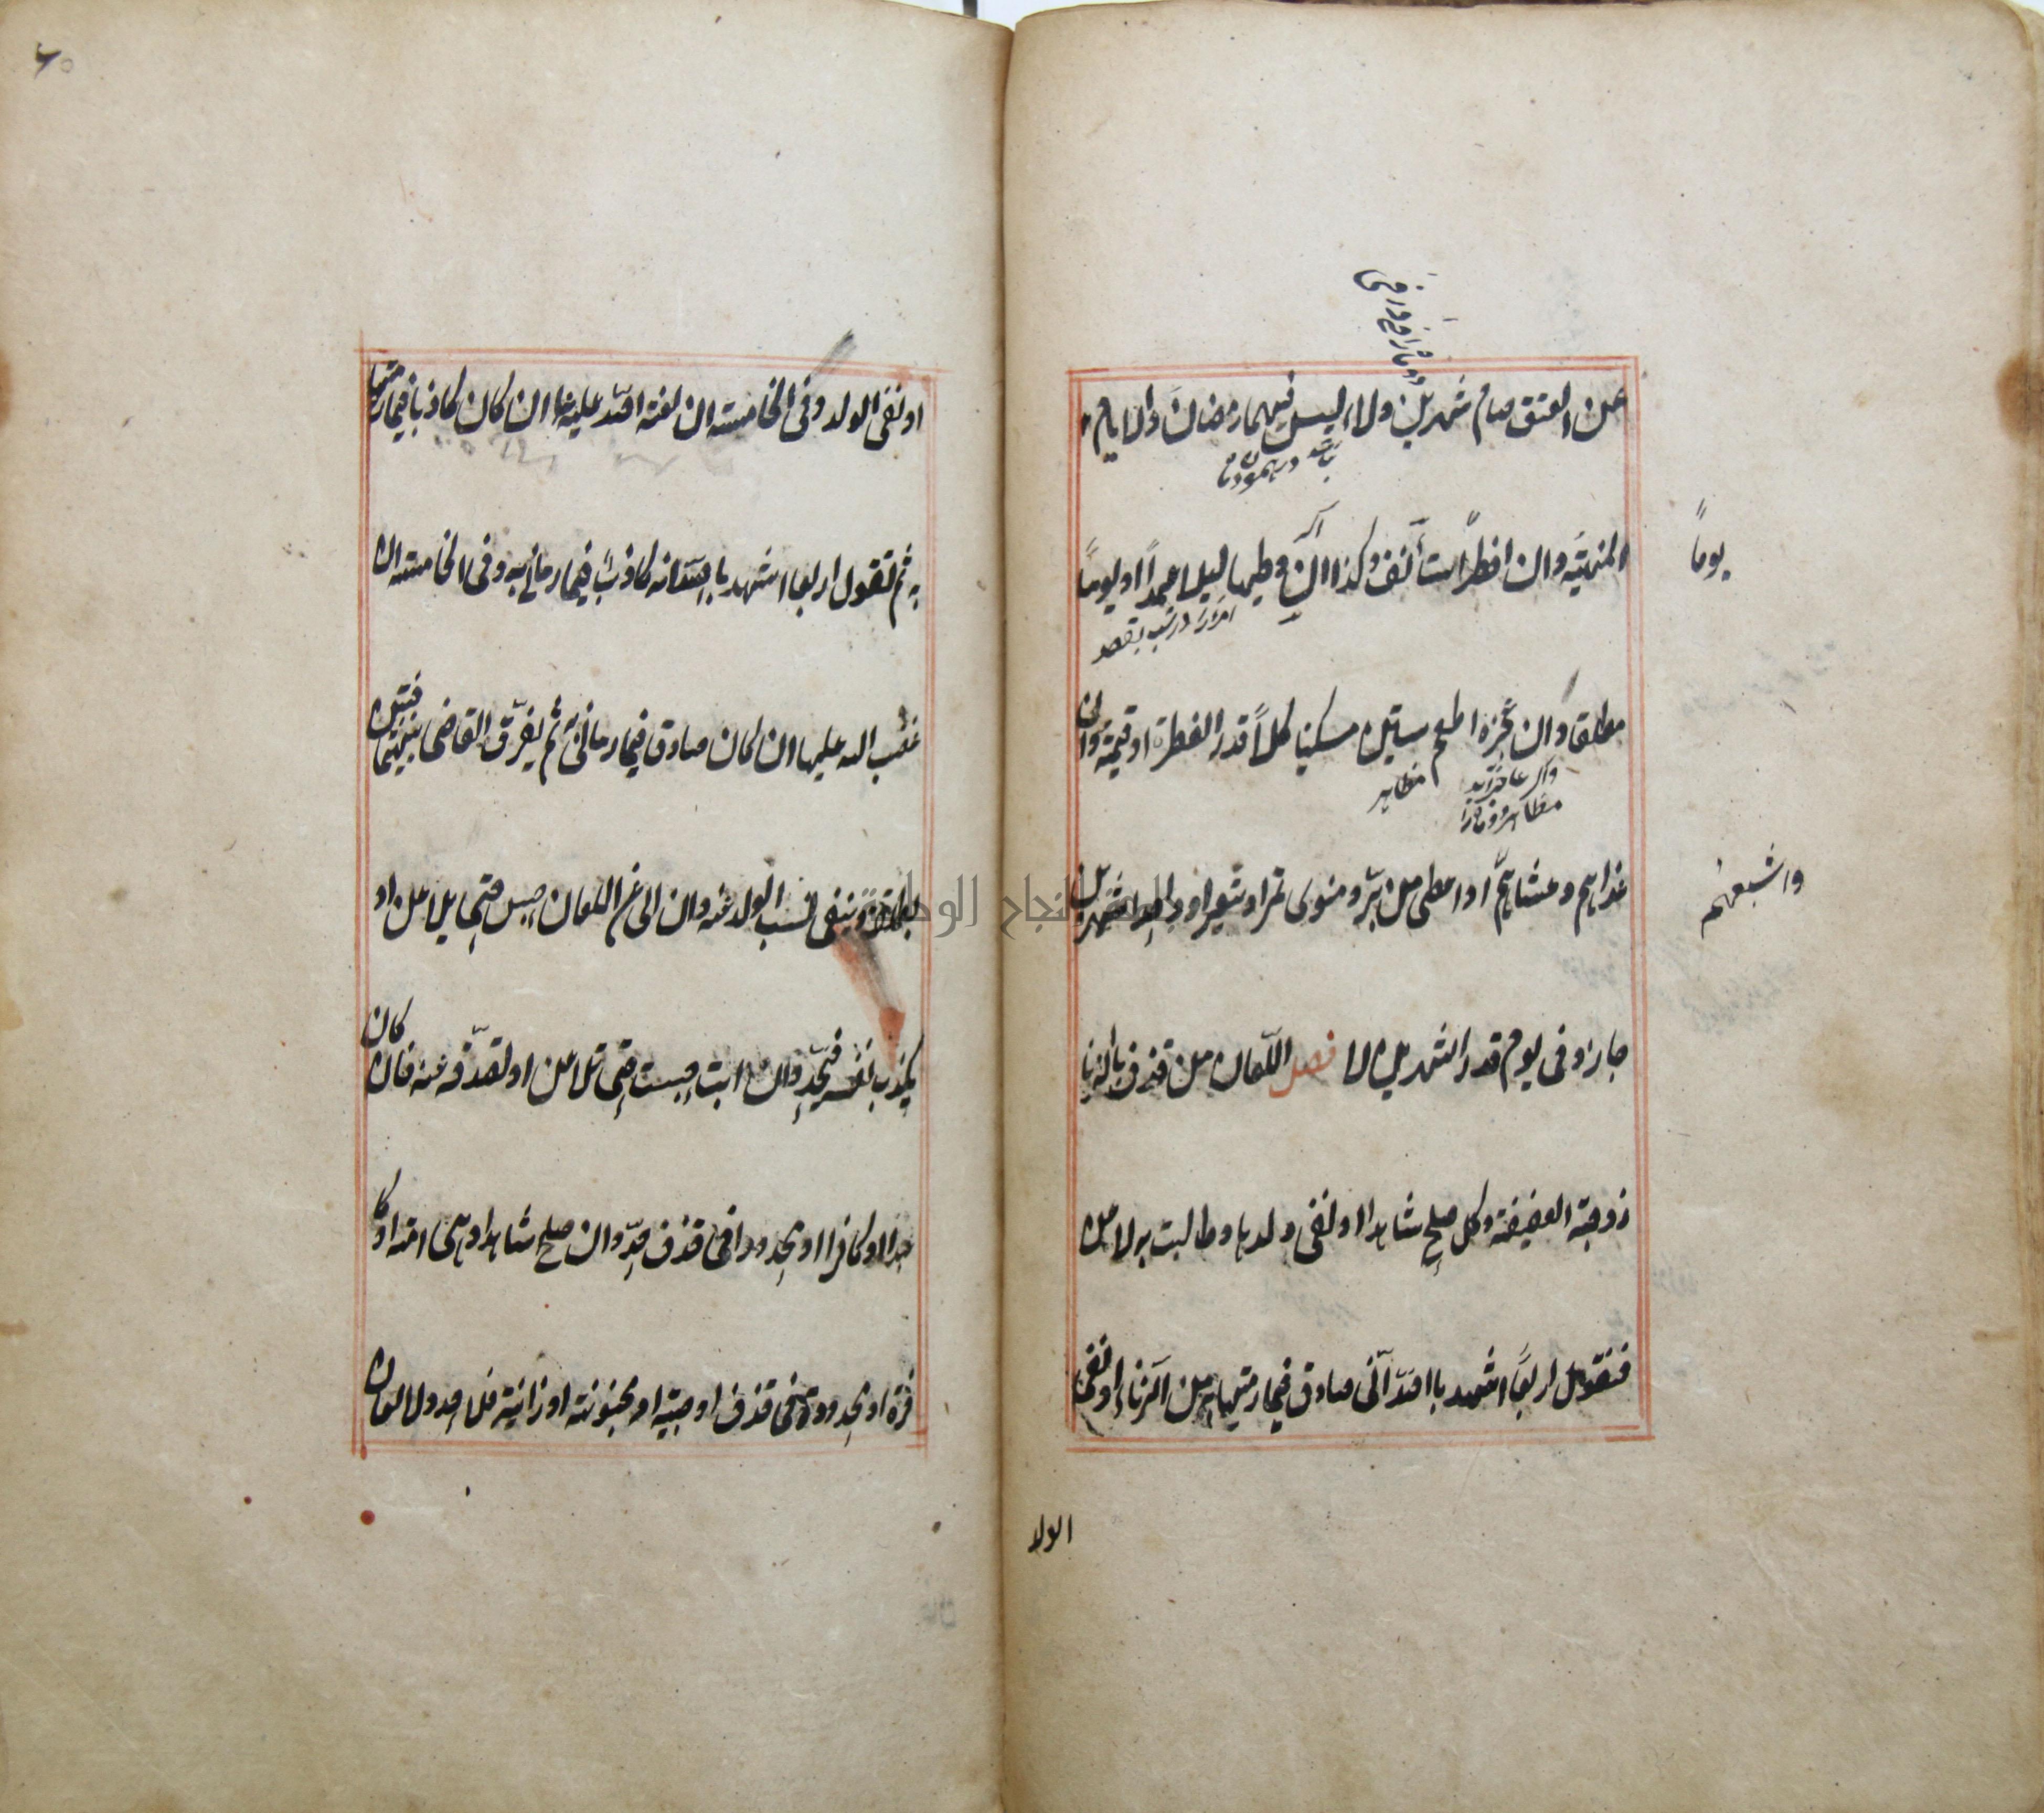 عن العتق صام شهرين ولاء ليس فيهما رمضان والايام
المنهية وان افطر استأنف وكذا ان وطيها ليلا عمدا او يوما
يوماً
مطلقا وان عجز اطعم ستين مسكينا كلا قدر الفطرة او قيمته وان
مظاهر
غداهم وعشاهم او اعطى من بر ومنوى تمر او شعير او واحدا شهرين
واشبعهم
جاز وفى يوم قدر الشهرين لا فصل اللعان من قذف بالزنا
زوجته العفيفة وكل صلح شاهدا او نفى ولدها وطالبت به لاعن
فنقول اربعا اشهد بالله انى صادق فيما رميتها به من الزناء او نفى
الولد
او نفى الولد وفى الخامسة ان لعنة الله عليه ان كان كاذبا فيما رميتها
به ثم تقول اربعا اشهد بالله انه كاذب فيما رمانى به وفى الخامسة ان
غضب الله عليها ان كان صادق فيما رمانى به ثم يفرق القاضى بينهما فتبين
بطلقة وينفى نسب الولد عنه وان ابى عن اللعان حبس حتى يلاعن او
يكذب نفسه فيحد وان ابت حبست حتى تلاعن او تصدقه عنه فان كان
عبدا او كافرا او محدودا فى قذف حد وان صلح شاهدا وهى امة او كا
فرة او محدودة فى قذف او صبية او مجنونة او زانية فلا حد ولا لعان